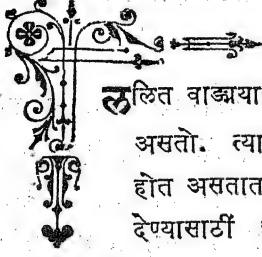 ललित वाङ्मया
असतो. त्या
होत असतात
देण्यासाठीं